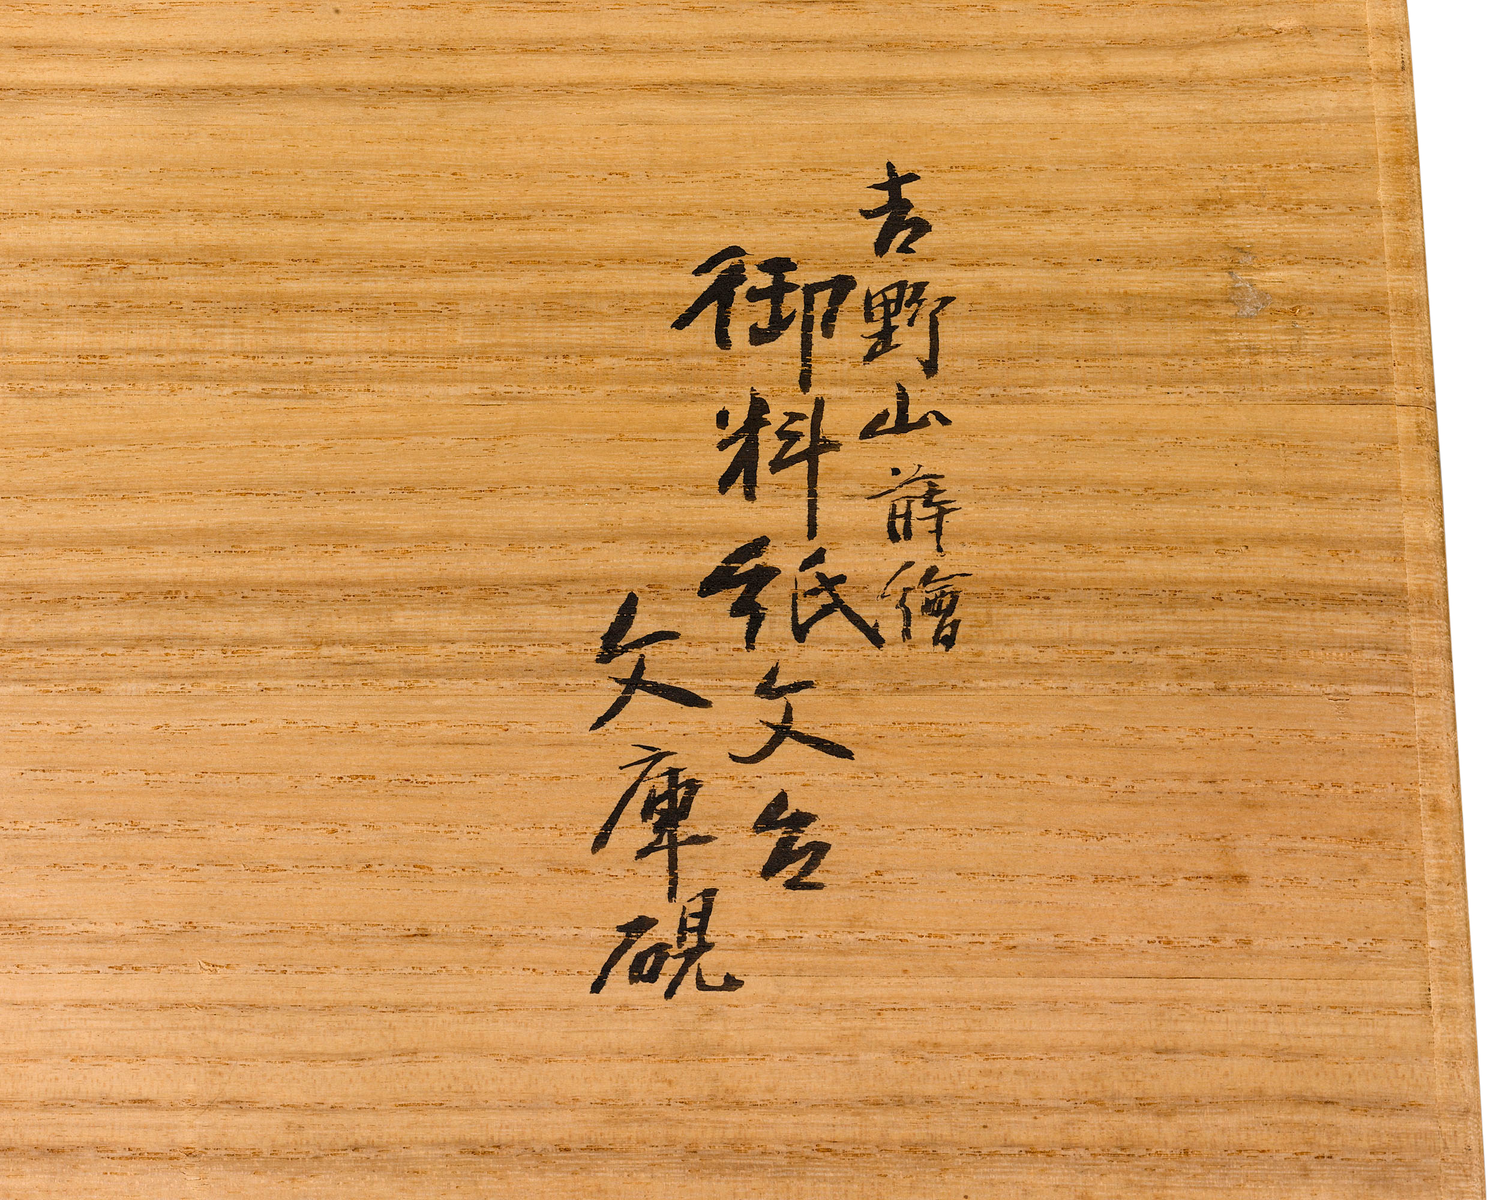 吉野山蒔繪
御料紙文台
文庫硯